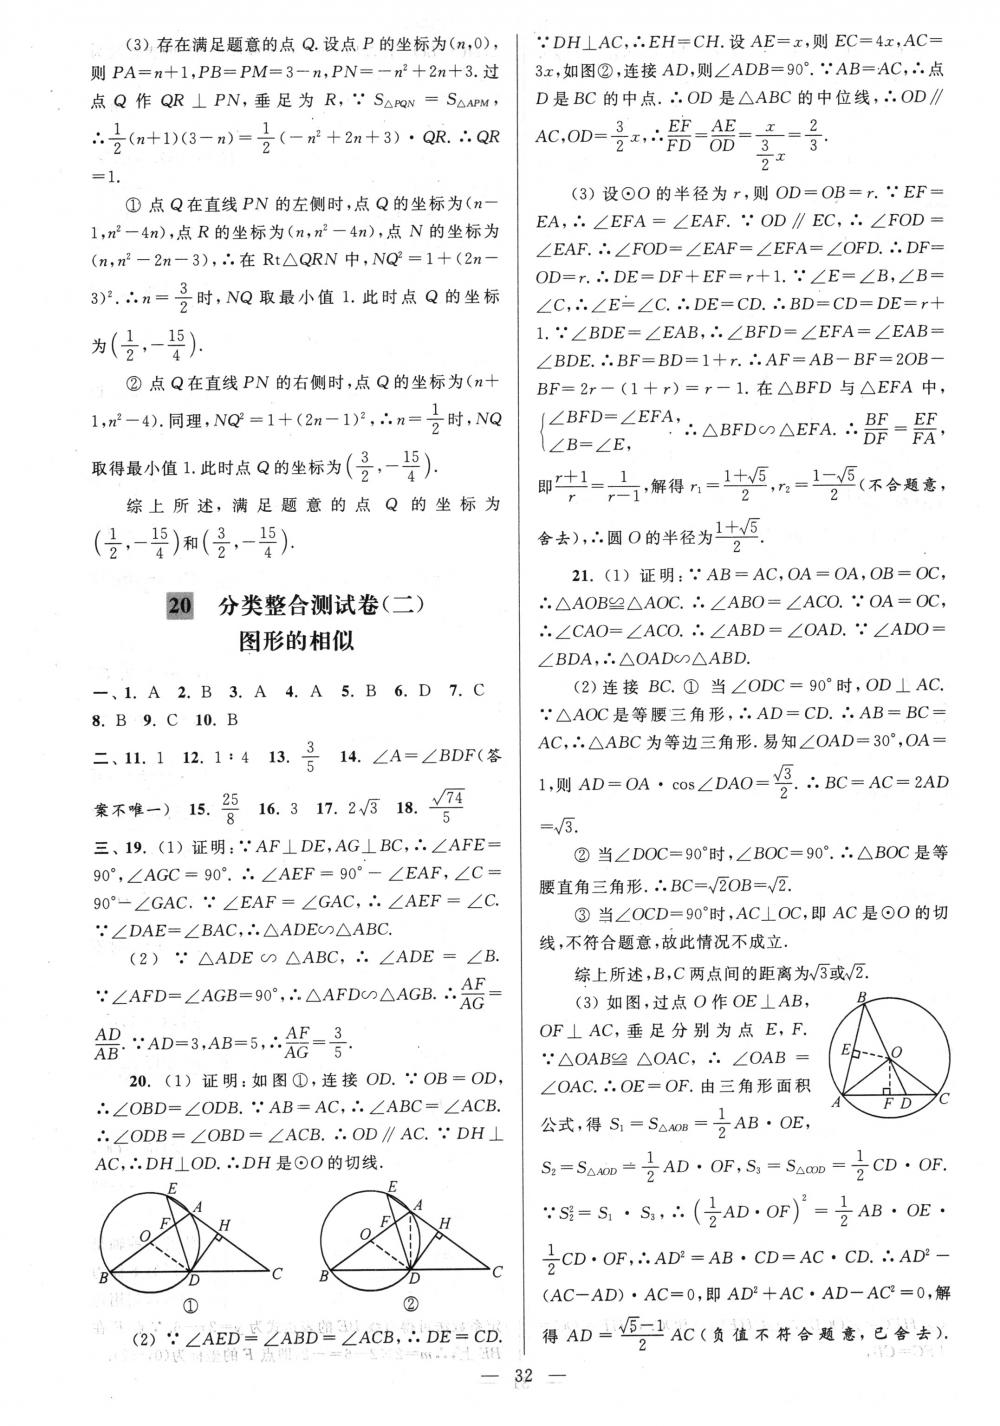 (3) 存在满足题意的点 Q. 设点 P 的坐标为(n,0),
则 PA=n+1,PB=PM=3-n,PN=-n²+2n+3. 过
点 Q 作 QR⊥PN,垂足为 R,∵ S△PQN = S△APM,
∴1/2(n+1)(3-n)=1/2(-n²+2n+3)·QR. ∴QR
=1.
① 点 Q 在直线 PN 的左侧时,点 Q 的坐标为(n-
1,n²-4n),点 R 的坐标为(n,n²-4n),点 N 的坐标为
(n,n²-2n-3),∴在 Rt△QRN 中,NQ²=1+(2n-
3)². ∴n=3/2时,NQ 取最小值 1. 此时点 Q 的坐标
为(1/2,-15/4).
② 点 Q 在直线 PN 的右侧时,点 Q 的坐标为(n+
1,n²-4). 同理,NQ²=1+(2n-1)²,∴n=1/2时,NQ
取得最小值 1. 此时点 Q 的坐标为(3/2,-15/4).
综上所述,满足题意的点 Q 的坐标为
(1/2,-15/4)和(3/2,-15/4).
20 分类整合测试卷(二)
图形的相似
一、1. A 2. B 3. A 4. A 5. B 6. D 7. C
8. B 9. C 10. B
二、11. 1 12. 1∶4 13. 3/5 14. ∠A=∠BDF(答
案不唯一) 15. 25/8 16. 3 17. 2√3 18. √74/5
三、19. (1) 证明:∵AF⊥DE,AG⊥BC,∴∠AFE=
90°,∠AGC=90°. ∴∠AEF=90°-∠EAF,∠C=
90°-∠GAC. ∵∠EAF=∠GAC,∴∠AEF=∠C.
∵∠DAE=∠BAC,∴△ADE∽△ABC.
(2) ∵△ADE∽△ABC,∴∠ADE=∠B.
∵∠AFD=∠AGB=90°,∴△AFD∽△AGB. ∴AF/AG=
AD/AB. ∵AD=3,AB=5,∴AF/AG=3/5.
20. (1) 证明:如图①,连接 OD. ∵OB=OD,
∴∠OBD=∠ODB. ∵AB=AC,∴∠ABC=∠ACB.
∴∠ODB=∠OBD=∠ACB. ∴OD∥AC. ∵DH⊥
AC,∴DH⊥OD. ∴DH 是⊙O 的切线.
E A F H O B D C
①
E A F H O B D C
②
(2) ∵∠AED=∠ABD=∠ACB,∴DE=CD.
∵DH⊥AC,∴EH=CH. 设 AE=x,则 EC=4x,AC=
3x,如图②,连接 AD,则∠ADB=90°. ∵AB=AC,∴点
D 是 BC 的中点. ∴OD 是△ABC 的中位线,∴OD∥
AC,OD=3/2x,∴EF/FD=AE/OD=x/(3/2x)=2/3.
(3) 设⊙O 的半径为 r,则 OD=OB=r. ∵EF=
EA,∴∠EFA=∠EAF. ∵OD∥EC,∴∠FOD=
∠EAF. ∴∠FOD=∠EAF=∠EFA=∠OFD. ∴DF=
OD=r. ∴DE=DF+EF=r+1. ∵∠E=∠B,∠B=
∠C,∴∠E=∠C. ∴DE=CD. ∴BD=CD=DE=r+
1. ∵∠BDE=∠EAB,∴∠BFD=∠EFA=∠EAB=
∠BDE. ∴BF=BD=1+r. ∴AF=AB-BF=2OB-
BF=2r-(1+r)=r-1. 在△BFD 与△EFA 中,
{∠BFD=∠EFA,
∠B=∠E, ∴△BFD∽△EFA. ∴BF/DF=EF/FA,
即(r+1)/r=1/(r-1),解得 r₁=(1+√5)/2,r₂=(1-√5)/2(不合题意,
舍去),∴圆 O 的半径为(1+√5)/2.
21. (1) 证明:∵AB=AC,OA=OA,OB=OC,
∴△AOB≌△AOC. ∴∠ABO=∠ACO. ∵OA=OC,
∴∠CAO=∠ACO. ∴∠ABD=∠OAD. ∵∠ADO=
∠BDA,∴△OAD∽△ABD.
(2) 连接 BC. ① 当∠ODC=90°时,OD⊥AC.
∵△AOC 是等腰三角形,∴AD=CD. ∴AB=BC=
AC,∴△ABC 为等边三角形. 易知∠OAD=30°,OA=
1,则 AD=OA·cos∠DAO=√3/2. ∴BC=AC=2AD
=√3.
② 当∠DOC=90°时,∠BOC=90°. ∴△BOC 是等
腰直角三角形. ∴BC=√2OB=√2.
③ 当∠OCD=90°时,AC⊥OC,即 AC 是⊙O 的切
线,不符合题意,故此情况不成立.
综上所述,B,C 两点间的距离为√3或√2.
(3) 如图,过点 O 作 OE⊥AB,
OF⊥AC,垂足分别为点 E,F.
∵△OAB≌△OAC,∴∠OAB=
∠OAC. ∴OE=OF. 由三角形面积
公式,得 S₁=S△AOB=1/2AB·OE,
B E O A F D C
S₂=S△AOD=1/2AD·OF,S₃=S△COD=1/2CD·OF.
∵S₂²=S₁·S₃,∴(1/2AD·OF)²=1/2AB·OE·
1/2CD·OF,∴AD²=AB·CD=AC·CD. ∴AD²-
(AC-AD)·AC=0,即 AD²+AC·AD-AC²=0,解
得 AD=(√5-1)/2 AC(负值不符合题意,已舍去).
— 32 —